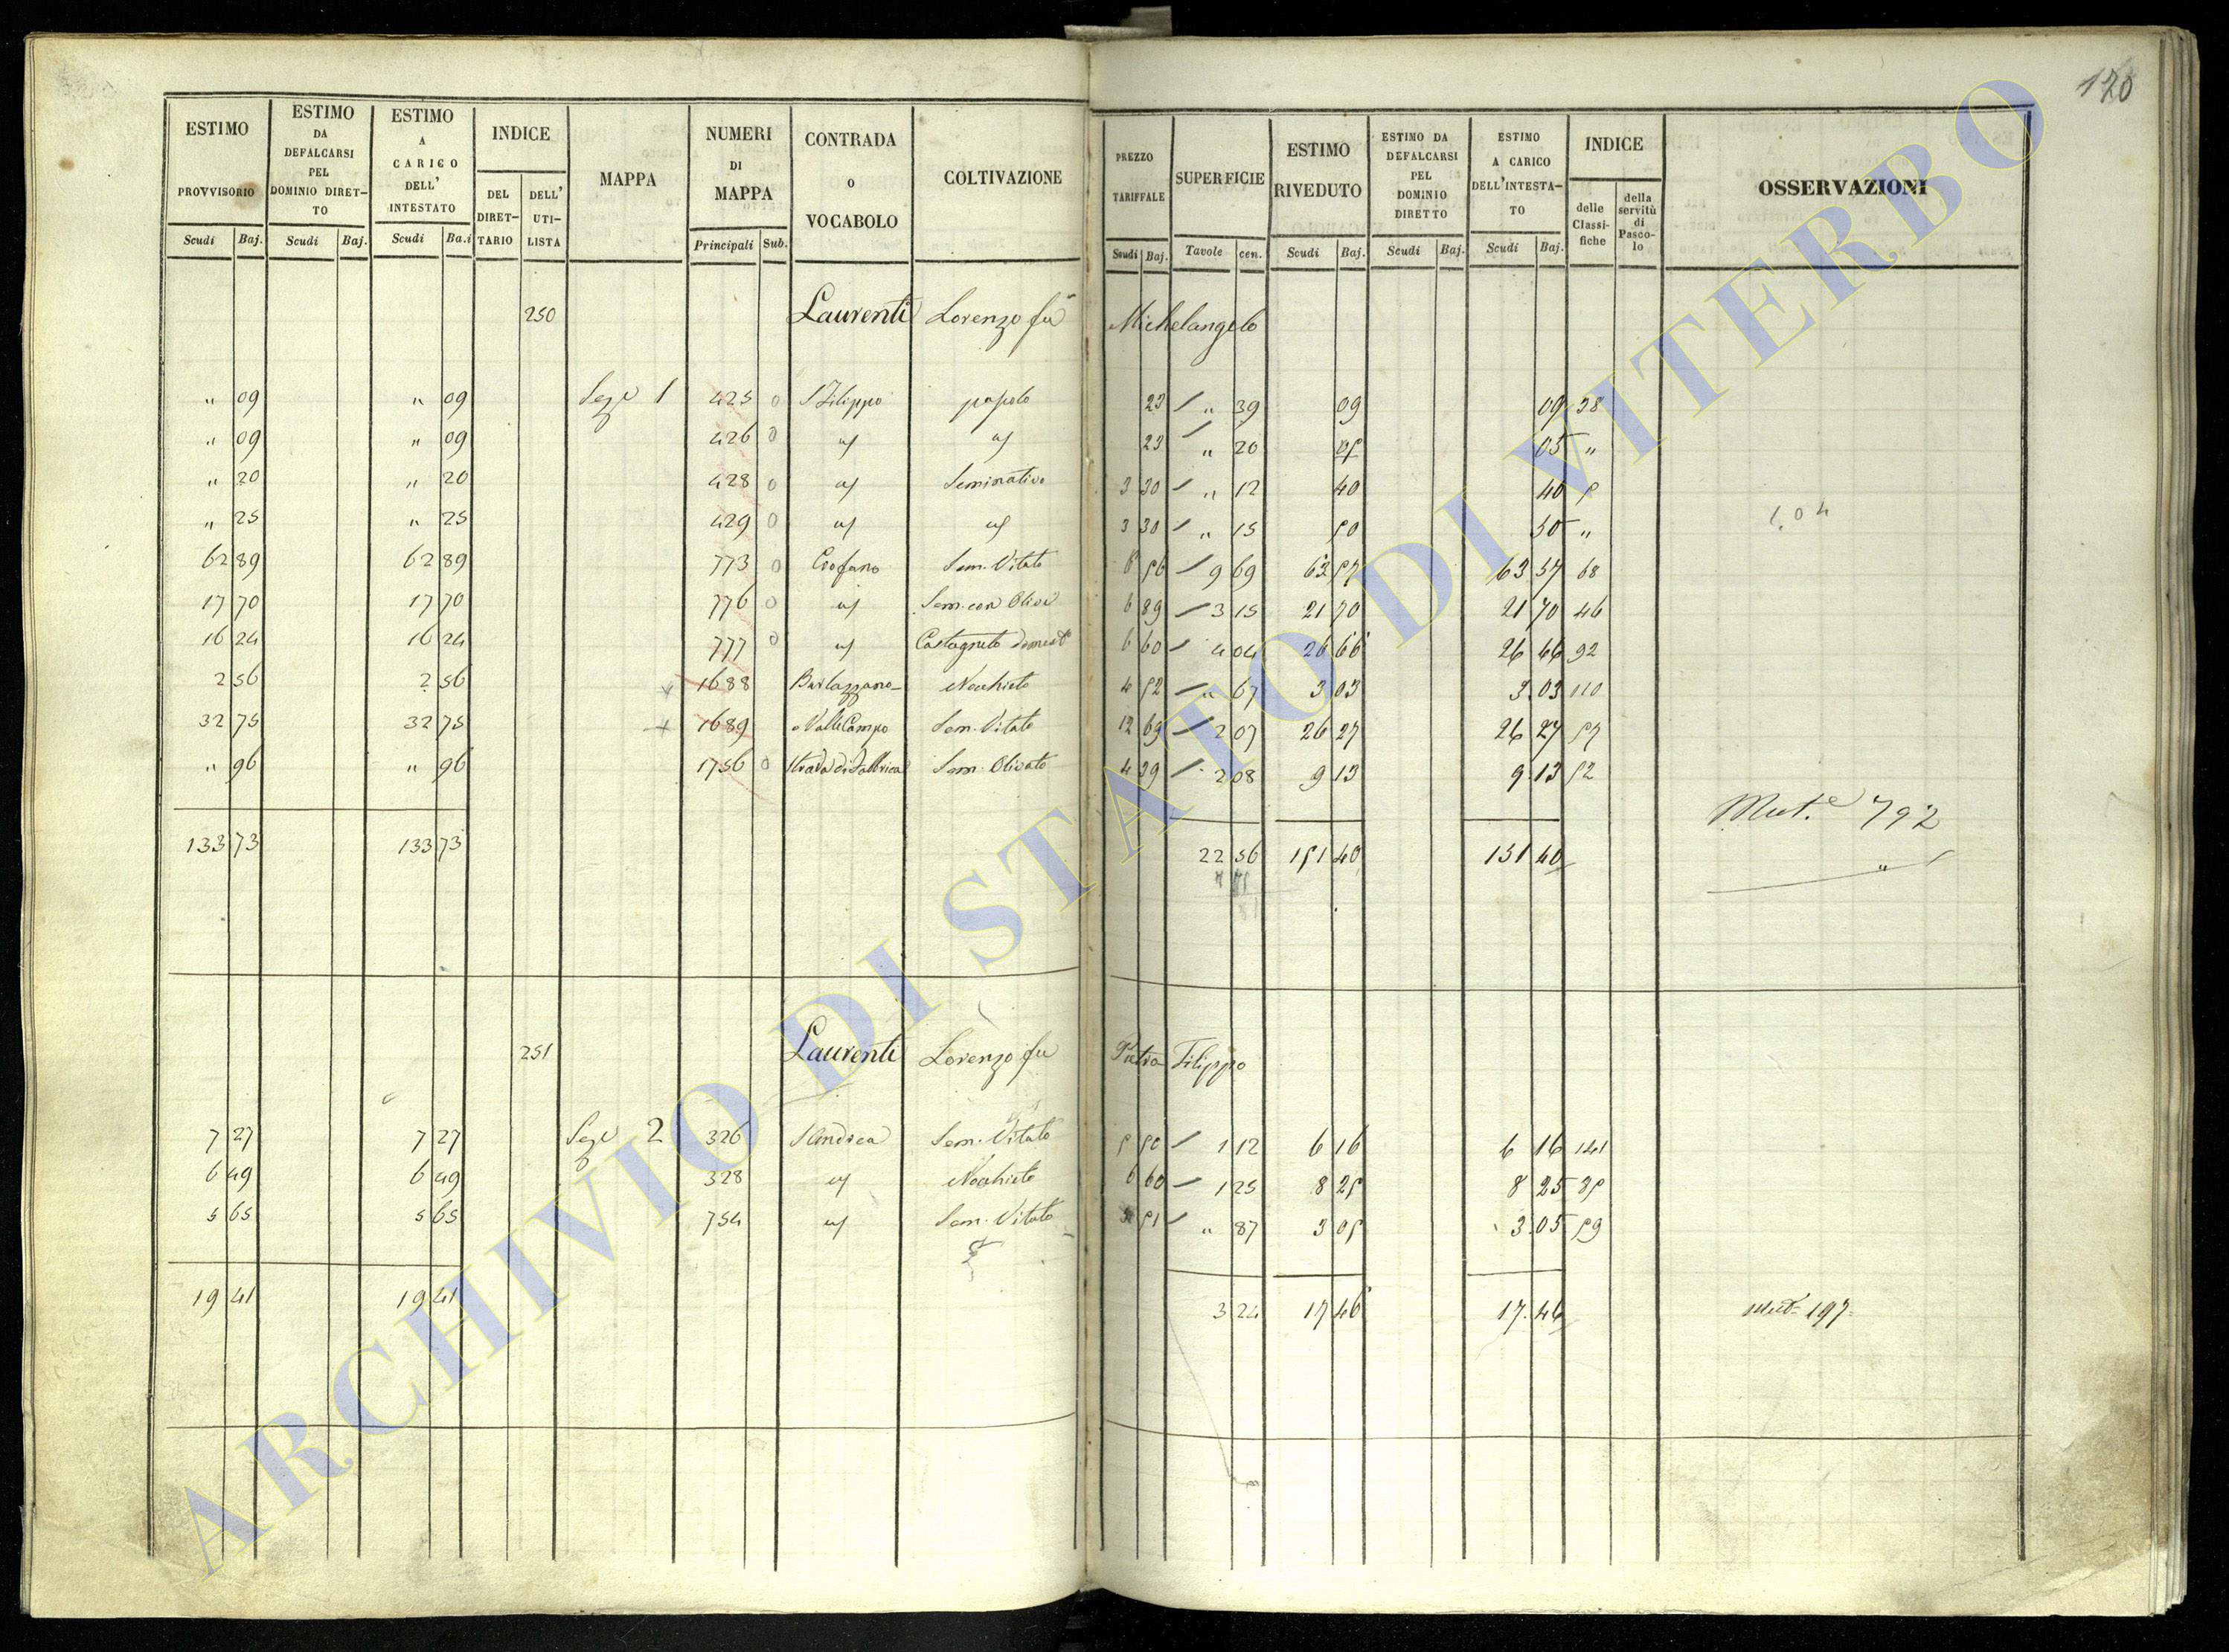 170
ESTIMO PROVVISORIO Scudi Baj.
ESTIMO DA DEFALCARSI PEL DOMINIO DIRET-TO Scudi Baj.
ESTIMO A CARICO DELL' INTESTATO Scudi Ba.i
INDICE DEL DIRET-TARIO DELL' UTI-LISTA
MAPPA
NUMERI DI MAPPA Principali Sub.
CONTRADA O VOCABOLO
COLTIVAZIONE
PREZZO TARIFFALE Scudi Baj.
SUPERFICIE Tavole cen.
ESTIMO RIVEDUTO Scudi Baj.
ESTIMO DA DEFALCARSI PEL DOMINIO DIRETTO Scudi Baj.
ESTIMO A CARICO DELL'INTESTA-TO Scudi Baj.
INDICE delle Classi-fiche della servitù di Pasco-lo
OSSERVAZIONI
250 Laurenti Lorenzo fu Michelangelo
" 09 " 09 Sez.e 1 425 0 S Filippo 23 " 39 09 09 38
" 09 " 09 426 0 23 " 20 05 05 "
" 20 " 20 428 0 Seminativo 3 30 " 12 40 40 5
" 25 " 25 429 0 3 30 " 15 50 50 "
1.04
62 89 62 89 773 0 Crofano Sem. Vitato 6 56 9 69 63 57 63 57 68
17 70 17 70 776 0 Sem. con Olivi 6 89 3 15 21 70 21 70 46
16 24 16 24 777 0 Castagneto domest.o 6 60 4 04 26 66 26 66 92
2 56 2 56 1688 Barlazzano Nochieto 4 52 " 67 3 03 3.03 110
32 75 32 75 1689 o Valle Campo Sem. Vitato 12 69 2 07 26 27 26 27 57
" 96 " 96 1756 0 Strada di Fabbrica Sem. Olivato 4 39 2 08 9 13 9.13 52
Mut.e 792
133 73 133 73 22 56 151 40 151 40
"
251 Laurenti Lorenzo fu Pietro Filippo
7 27 7 27 Sez.e 2 326 S Andrea Sem. Vitato 5 50 1 12 6 16 6 16 141
6 49 6 49 328 Nochieto 6 60 1 25 8 25 8 25 85
5 65 5 65 754 Sem. Vitato 3 51 " 87 3 05 3.05 59
19 41 19 41 3 24 17 46 17.46 Mut.e 197
ARCHIVIO DI STATO DI VITERBO